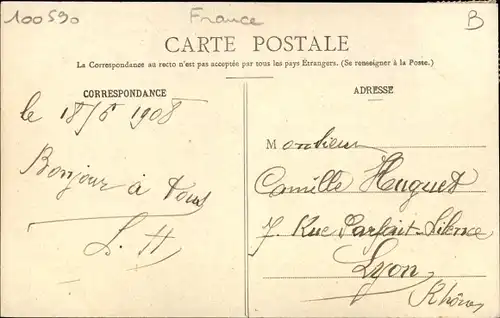 100590
France
B
CARTE POSTALE
La Correspondance au recto n'est pas acceptée par tous les pays Etrangers. (Se renseigner à la Poste.)
CORRESPONDANCE
le 18/6 1908
Bonjour à Tous
L. H
ADRESSE
Monsieur
Camille Huguet
7. Rue Parfait-Silence
Lyon
Rhône